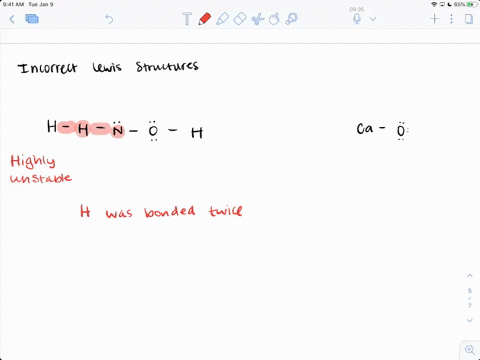 9:41 AM Tue Jan 9
65%
T
09:26
Incorrect Lewis Structures
H - H - N - O - H
Ca - O
Highly
unstable
H was bonded twice
5
7